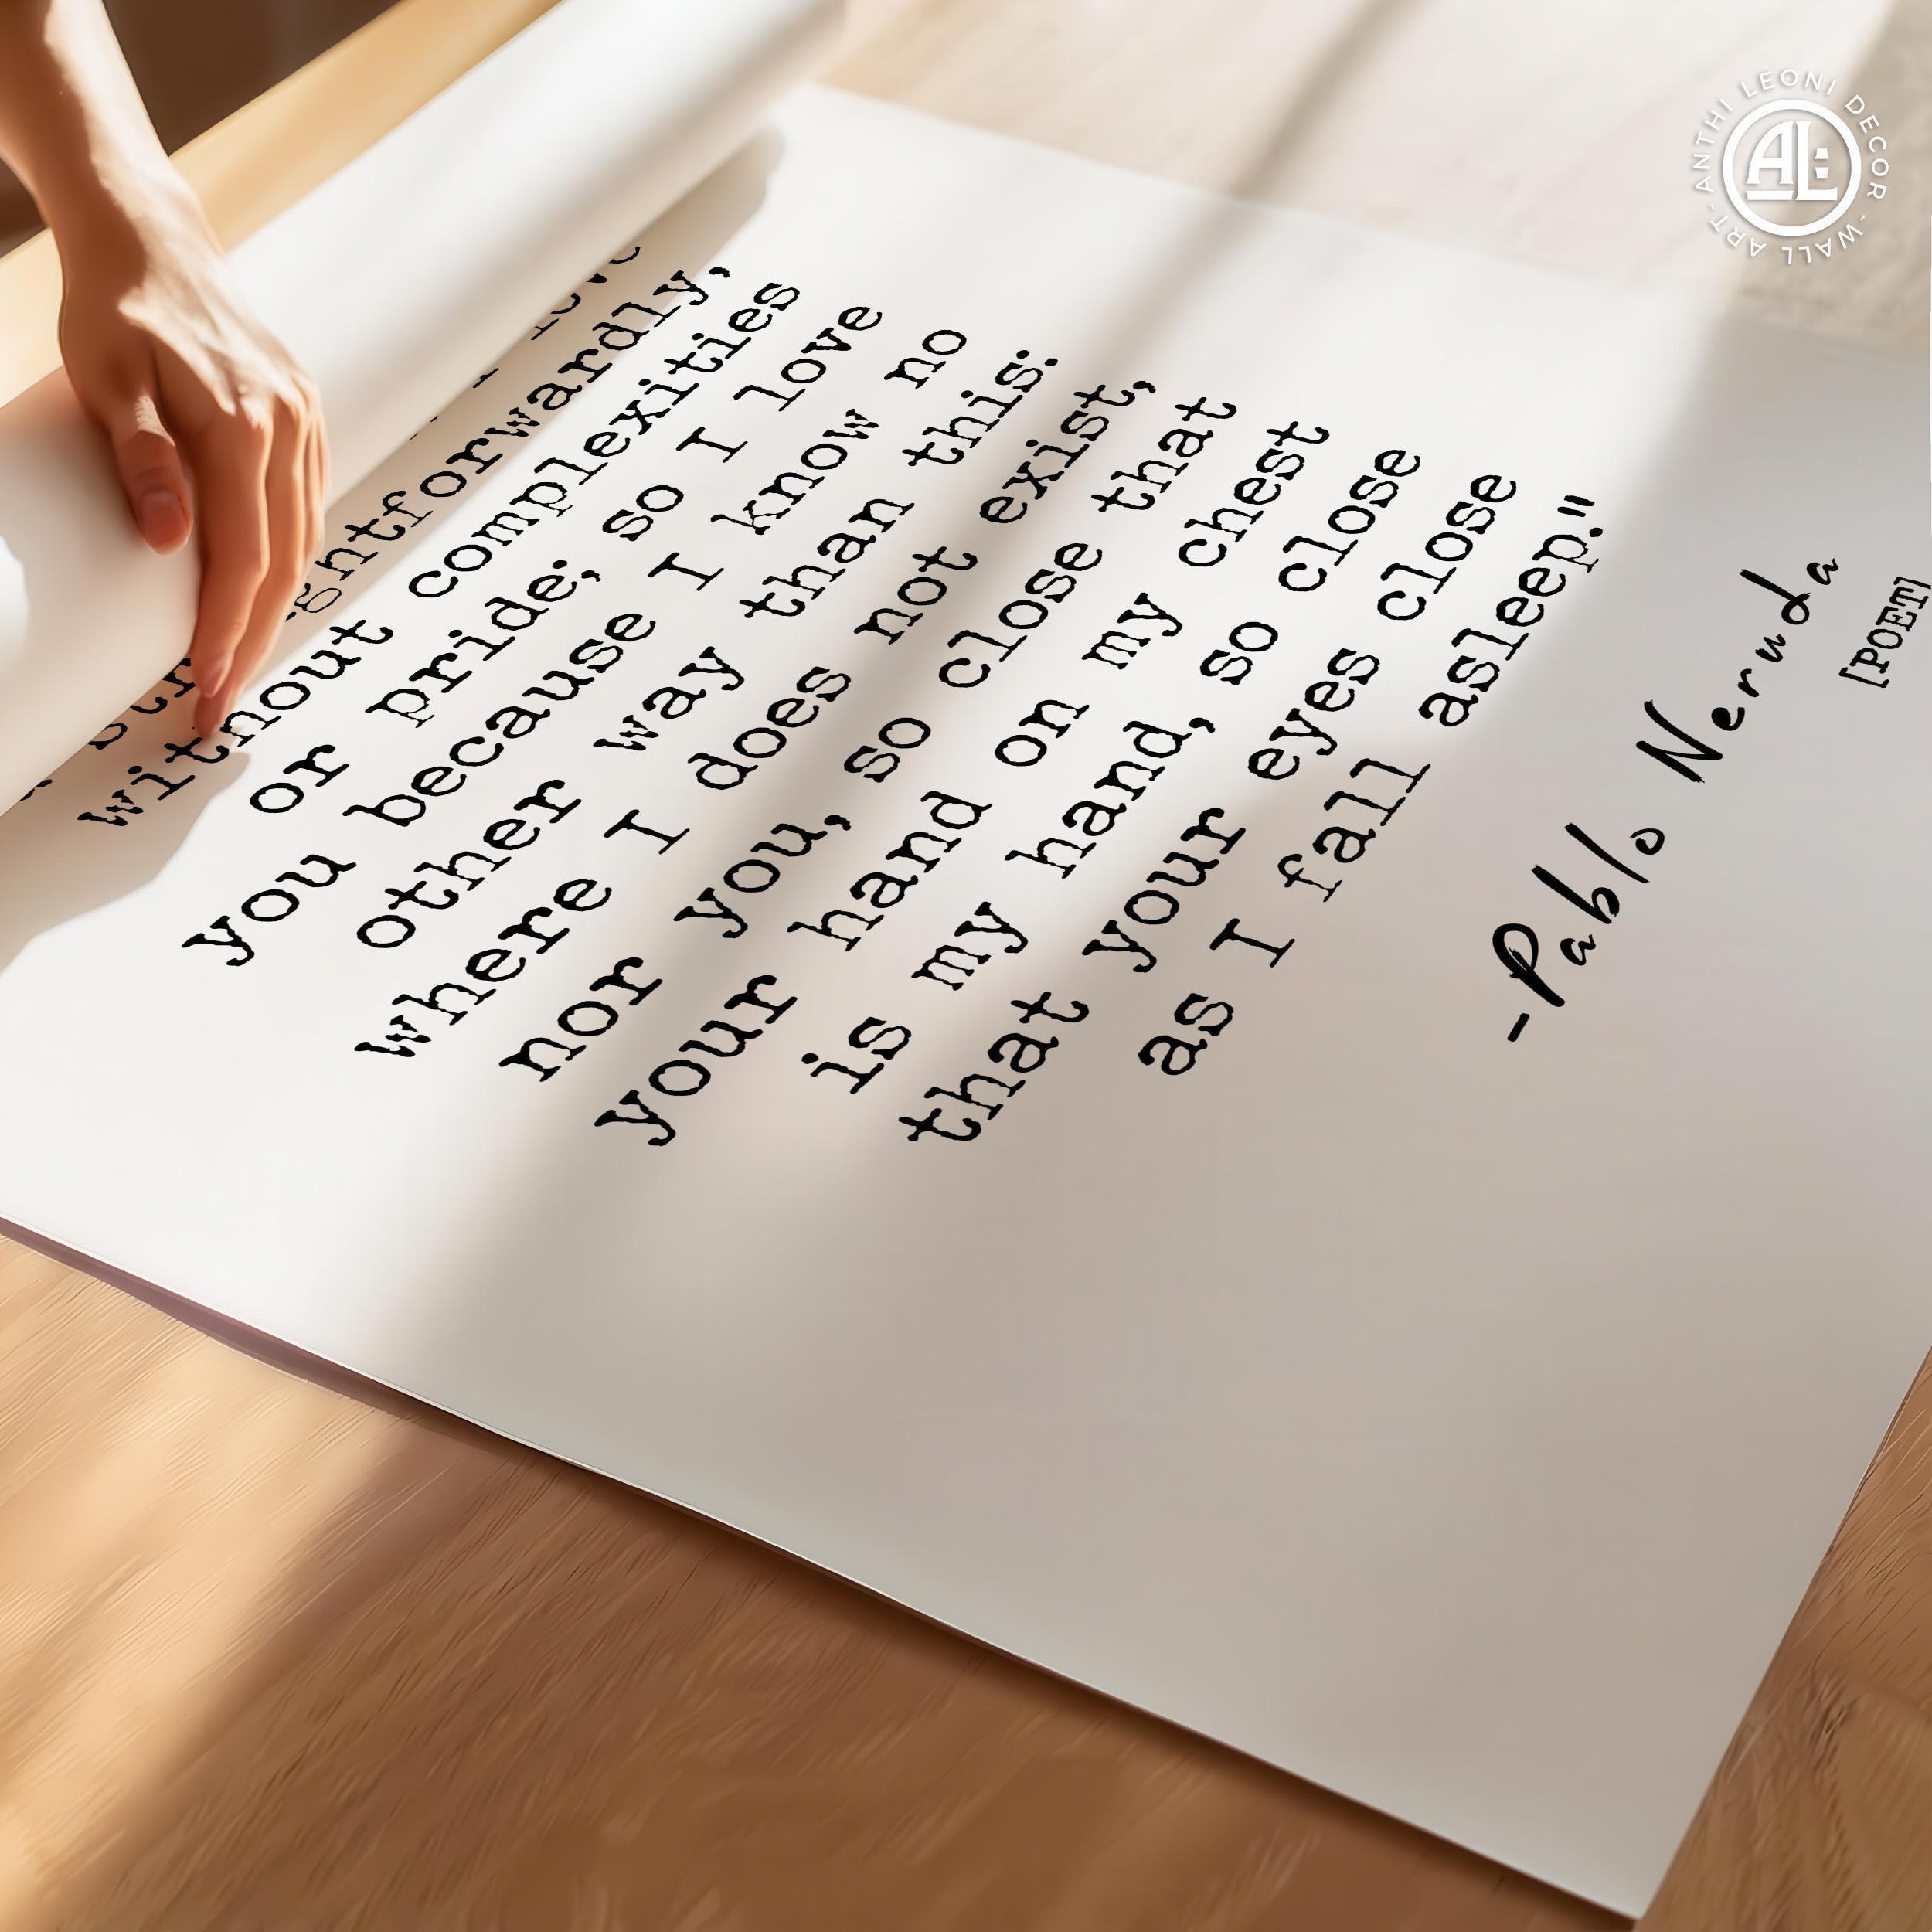 without complexities
or pride; so I love
you because I know no
other way than this:
where I does not exist,
nor you, so close that
your hand on my chest
is my hand, so close
that your eyes close
as I fall asleep."
-Pablo Neruda
[POET]
ANTHI LEONI DECOR - WALL ART -
AL